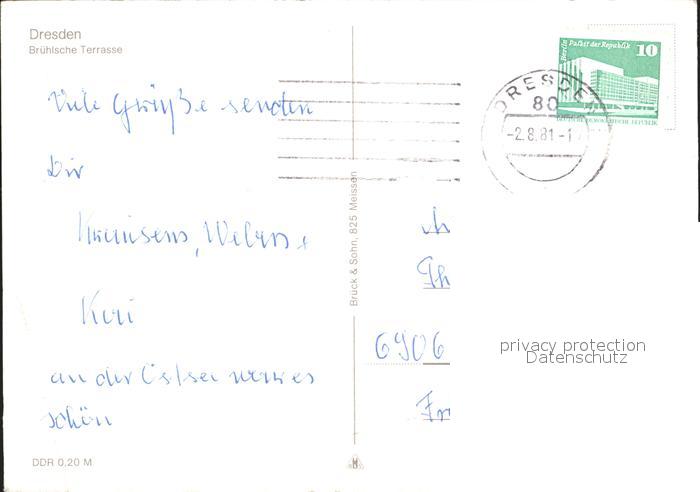 Dresden
Brühlsche Terrasse
Viele Grüße senden
Dir
Webers +
Kari
an der Ostsee war es
schön
DDR 0,20 M
Brück & Sohn, 825 Meissen
Berlin Palast der Republik 10
DEUTSCHE DEMOKRATISCHE REPUBLIK
DRESDEN
80
-2.8.81-1
6906
privacy protection
Datenschutz